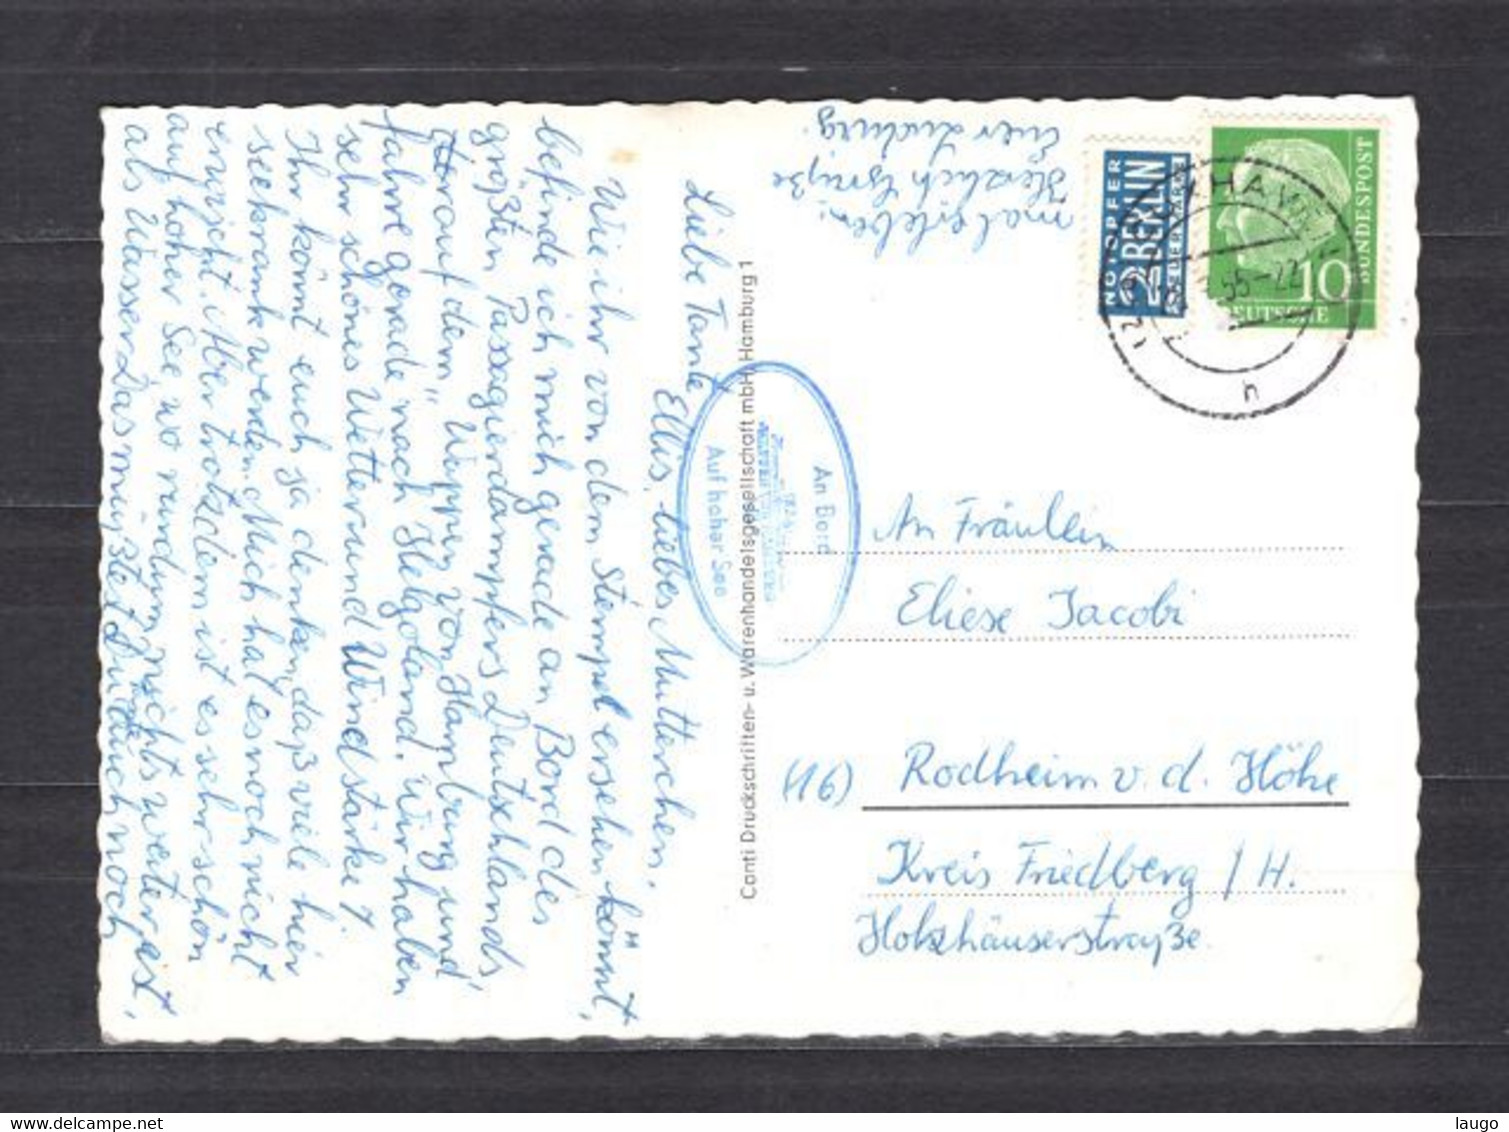 Liebe Tante Ellis, liebes Mutterchen,
Wie ihr von dem Stempel ersehen könnt,
befinde ich mich gerade an Bord des
größten Passagierdampfers Deutschlands,
auf dem "Wappen von Hamburg" und
fahre gerade nach Helgoland. Wir haben
sehr schönes Wetter und Windstärke 7.
Ihr könnt euch ja denken, daß viele hier
seekrank werden. Mich hat es noch nicht
erwischt. Aber trotzdem ist es sehr schön
auf hoher See, wo rundum nichts weiter ist,
als Wasser. Das müßtest Du auch noch
mal erleben.
Herzlich Grüße
Euer
Conti Druckschriften- u. Warenhandelsgesellschaft mbH, Hamburg 1
An Bord
Auf hoher See
NOTOPFER
2 BERLIN
STEUERMARKE
10
DEUTSCHE
BUNDESPOST
55-22
h
An Fräulein
Eliese Jacobi
(16) Rodheim v. d. Höhe
Kreis Friedberg / H.
Holzhäuserstraße
www.delcampe.net
laugo